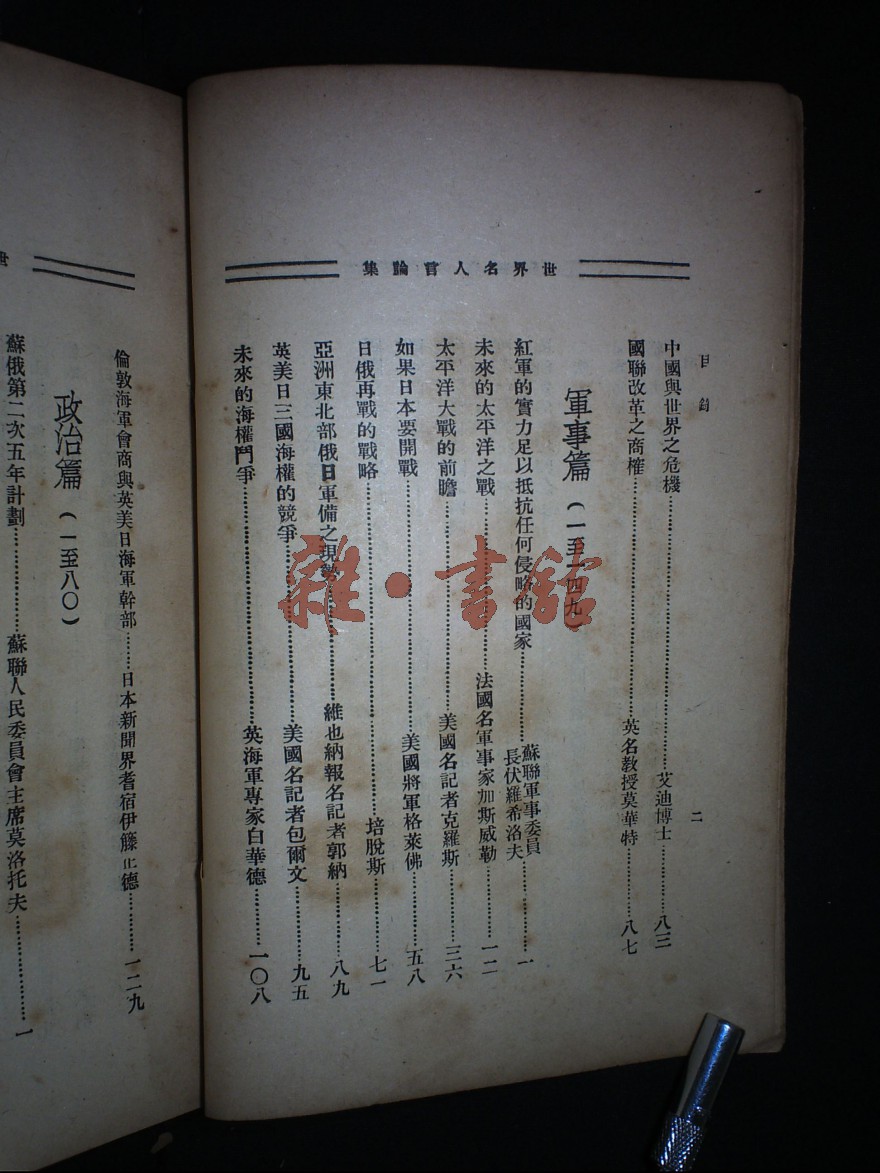 世界名人言論集
目錄
二
中國與世界之危機……艾迪博士……八三
國聯改革之商榷……英名教授莫華特……八七
軍事篇（一至一四九）
紅軍的實力足以抵抗任何侵略的國家……蘇聯軍事委員長伏羅希洛夫……一
未來的太平洋之戰……法國名軍事家加斯威勒……一二
太平洋大戰的前瞻……美國名記者克羅斯……三六
如果日本要開戰……美國將軍格萊佛……五八
日俄再戰的戰略……培脫斯……七一
亞洲東北部俄日軍備之現勢……維也納報名記者郭納……八九
英美日三國海權的競爭……美國名記者包爾文……九五
未來的海權鬥爭……英海軍專家白華德……一〇八
世
倫敦海軍會商與英美日海軍幹部……日本新聞界耆宿伊藤正德……一二九
政治篇（一至八〇）
蘇俄第二次五年計劃……蘇聯人民委員會主席莫洛托夫……一
雜·書館